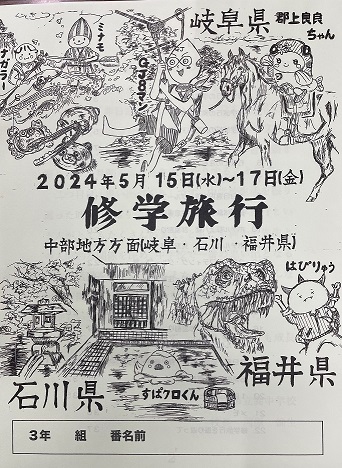 ナガラー
ミナモ
GJ8マン
岐阜県
郡上良良
ちゃん
2024年5月15日(水)~17日(金)
修学旅行
中部地方方面(岐阜・石川・福井県)
はぴりゅう
福井県
石川県
すぱクロくん
3年 組 番名前